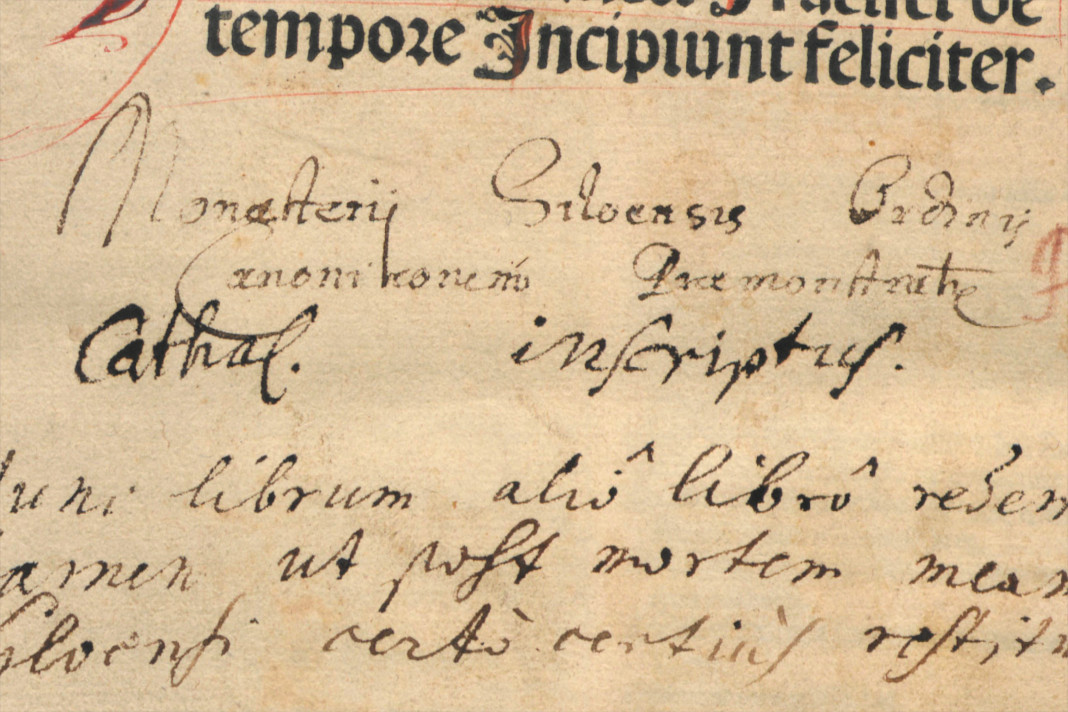 tempore Incipiunt feliciter.
Monasterij Siloensis Ordinis
Canonicorum Præmonstrat
Cathal. inscriptus.
librum aliô librô redem
tamen ut post mortem mean
Siloensi certò certiùs restitu